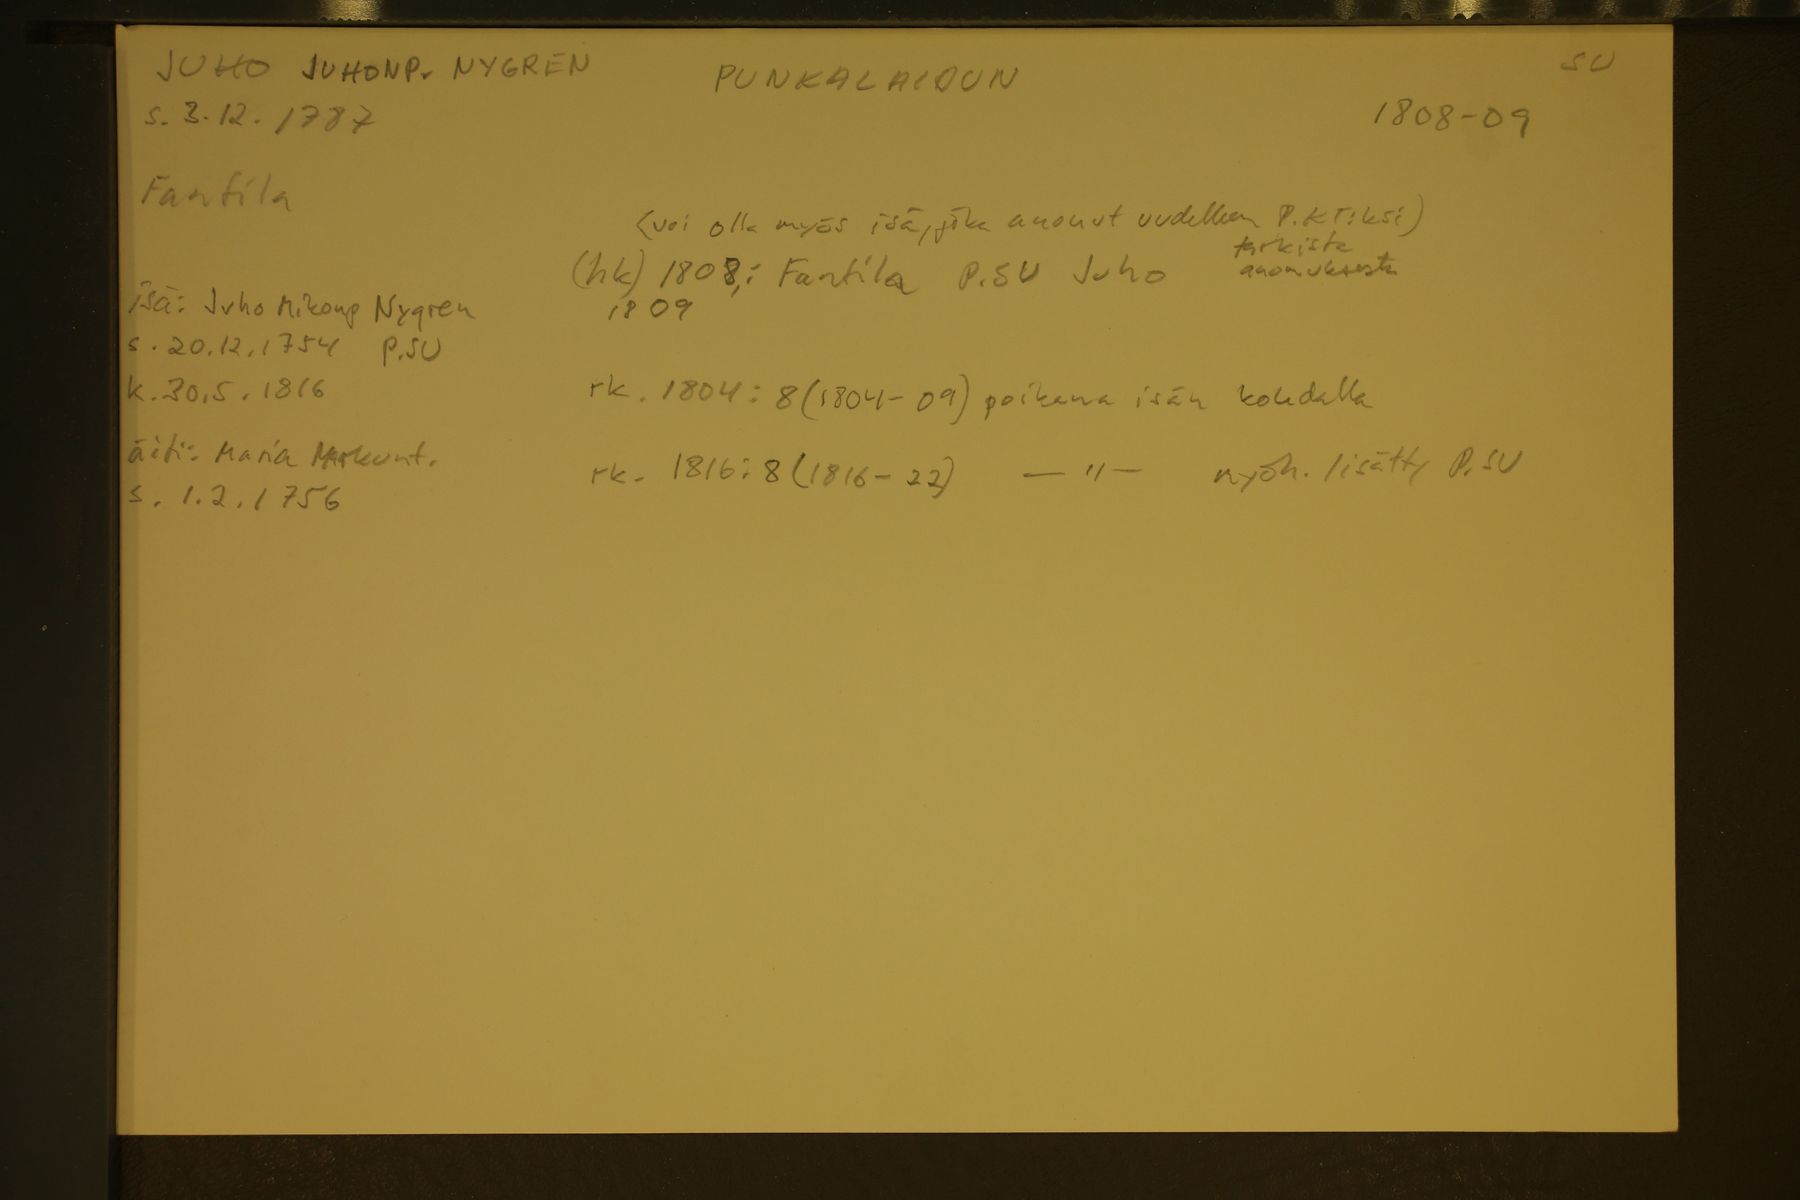 JUHO JUHONP. NYGREN PUNKALAIDUN SU
s. 3.12.1787 1808-09
Fantila
(voi olla myös isä, joka anonut uudelleen P.KT:ksi)
tarkista
anomuksesta
(hk) 1808,: Fantila P.SU Juho
1809
isä: Juho Mikonp Nygren
s. 20.12.1754 P.SU
k. 30.5.1816 rk. 1804:8 (1804-09) poikana isän kohdalla
äiti: Maria Markunt.
rk. 1816:8 (1816-22) — " — myöh. lisätty P.SU
s. 1.2.1756